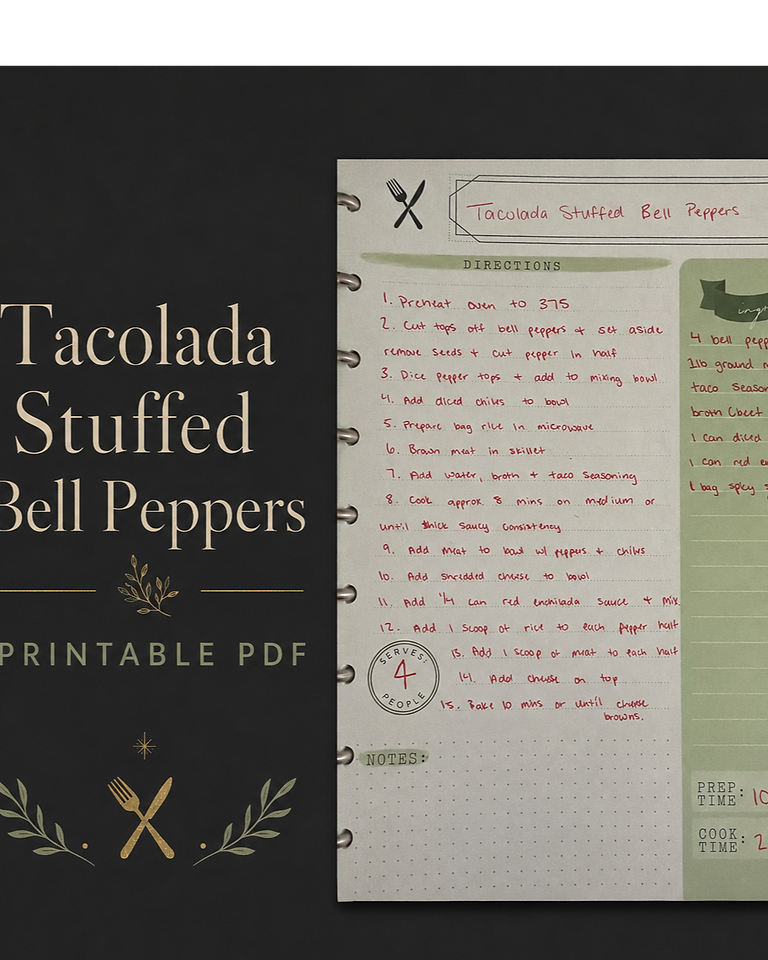 Tacolada
Stuffed
Bell Peppers
PRINTABLE PDF
Tacolada Stuffed Bell Peppers
DIRECTIONS
1. Preheat oven to 375
2. Cut tops off bell peppers + set aside
remove seeds + cut pepper in half
3. Dice pepper tops + add to mixing bowl
4. Add diced chiles to bowl
5. Prepare bag rice in microwave
6. Brown meat in skillet
7. Add water, broth + taco seasoning
8. Cook approx. 8 mins on medium or
until thick saucy consistency
9. Add meat to bowl w/ peppers + chiles
10. Add shredded cheese to bowl
11. Add 1/4 can red enchilada sauce + mix
12. Add 1 scoop of rice to each pepper half
13. Add 1 scoop of meat to each half
14. Add cheese on top
15. Bake 10 mins or until cheese
browns.
SERVES:
4
PEOPLE
NOTES:
4 bell
1lb ground
taco
broth (beet
1 can diced
1 can red
1 bag spicy
PREP
TIME:
COOK
TIME: